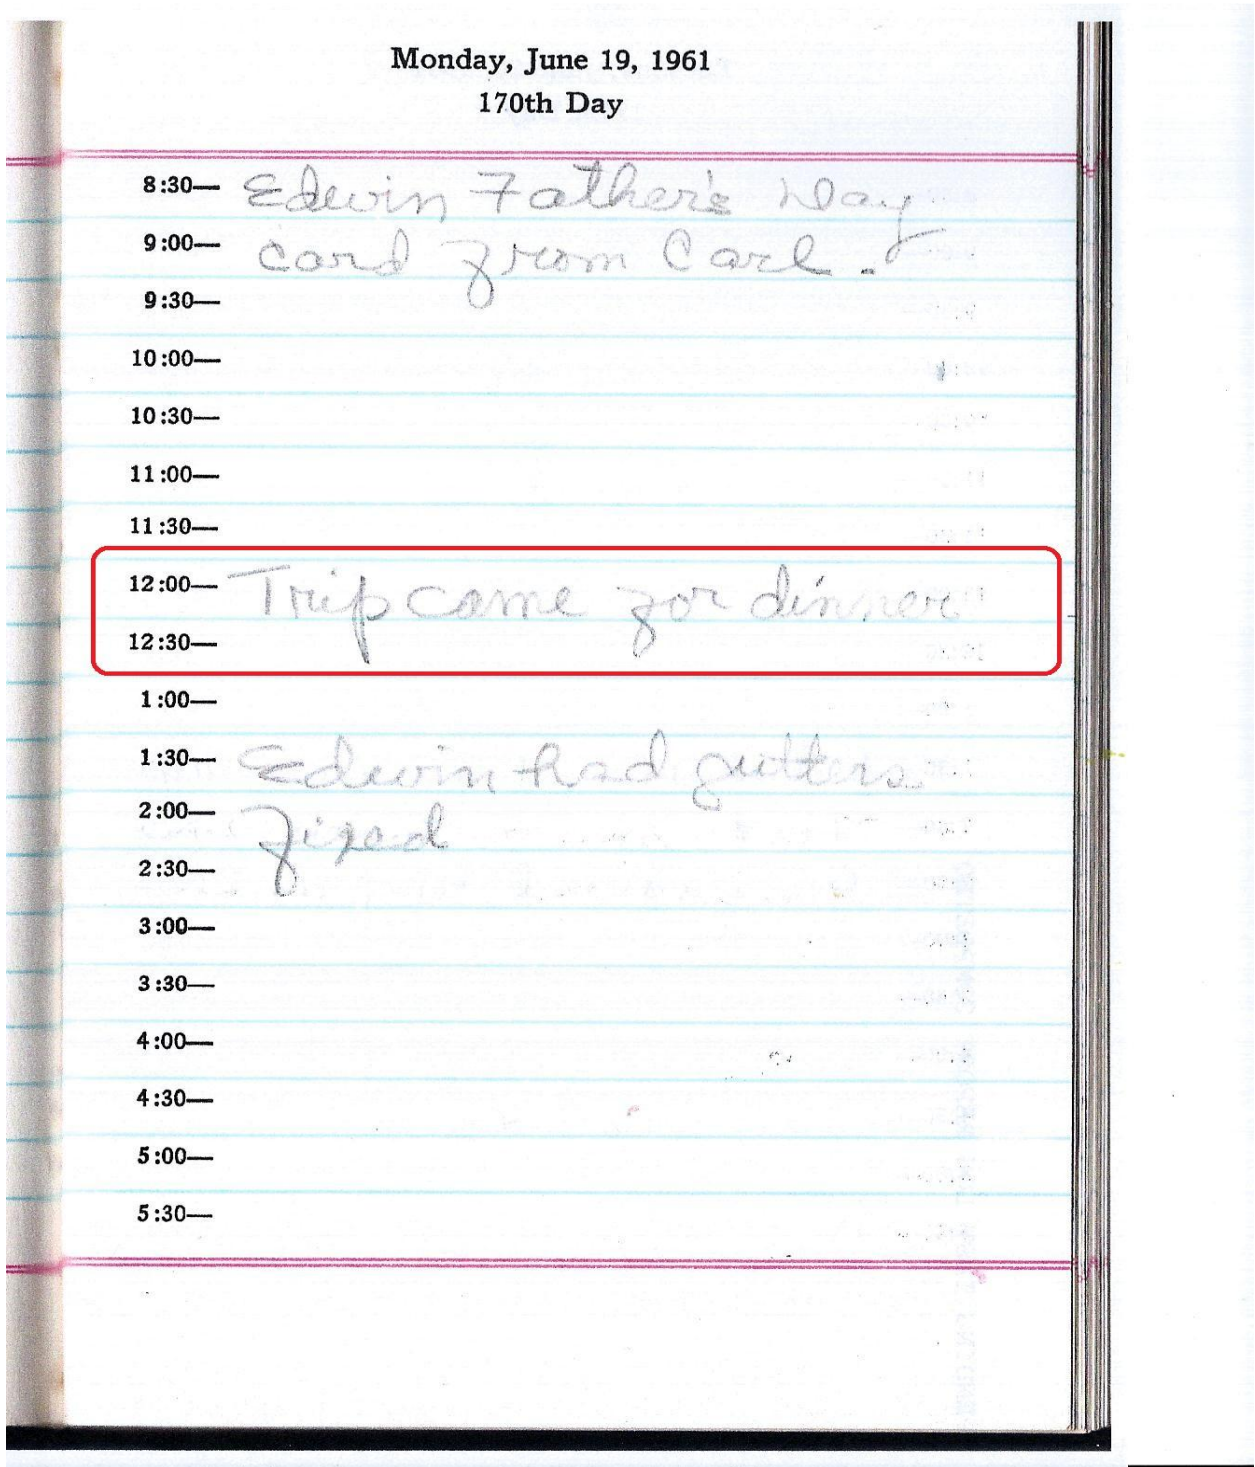 Monday, June 19, 1961
170th Day
8:30— Edwin Father's Day
9:00— card from Carl.
9:30—
10:00—
10:30—
11:00—
11:30—
12:00— Trip came for dinner
12:30—
1:00—
1:30— Edwin had gutters
2:00— fixed
2:30—
3:00—
3:30—
4:00—
4:30—
5:00—
5:30—